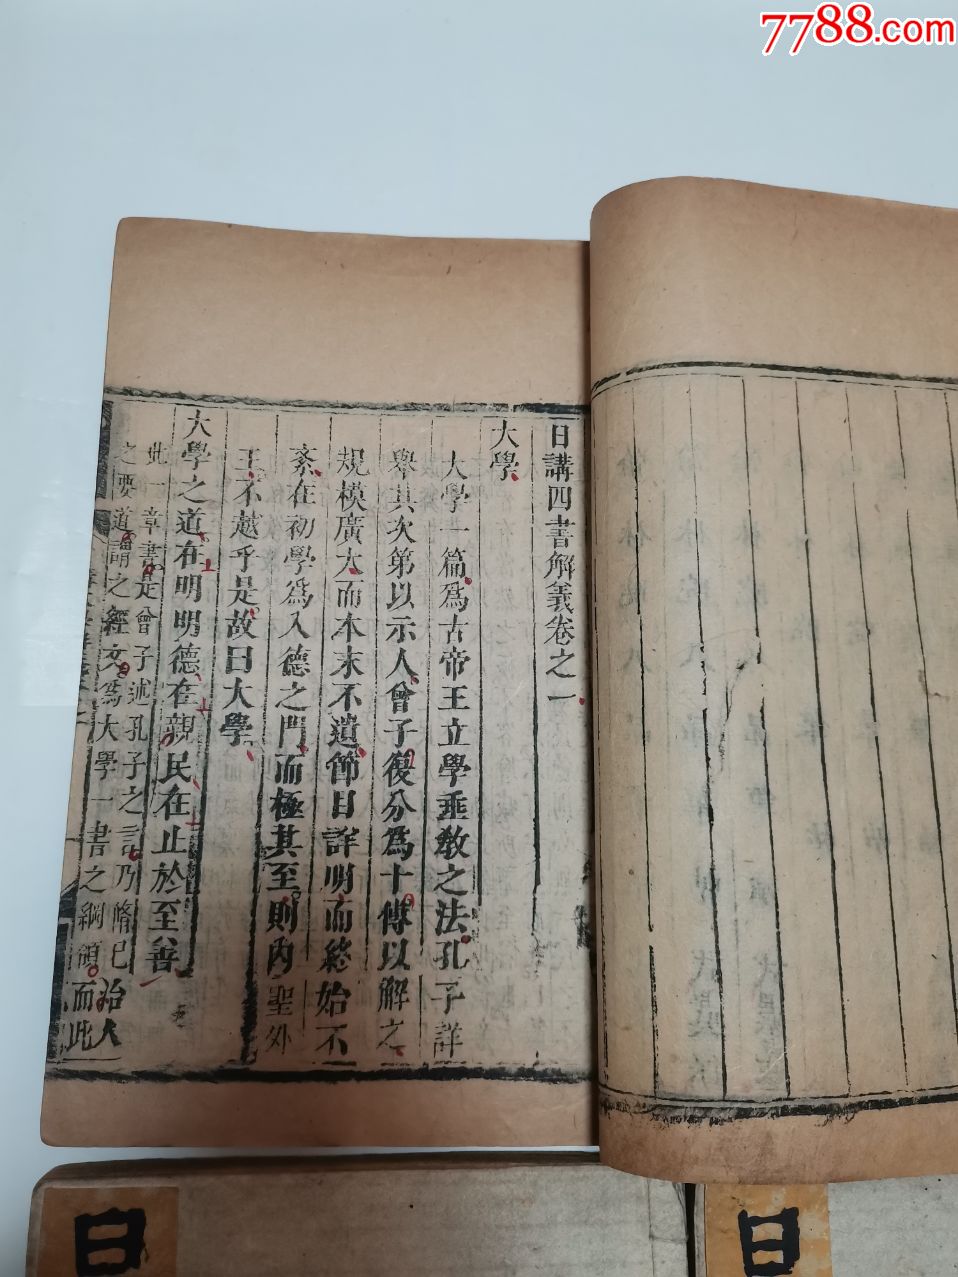 7788.com
日講四書解義卷之一
大學
大學一篇爲古帝王立學垂敎之法孔子詳
舉其次第以示人曾子復分爲十傳以解之
規模廣大而本末不遺節目詳明而終始不
紊在初學爲入德之門而極其至則內聖外
王不越乎是故曰大學
大學之道在明明德在親民在止於至善
此一章書是曾子述孔子之言乃脩己治人
之要道謂之經文爲大學一書之綱領而此
日
日